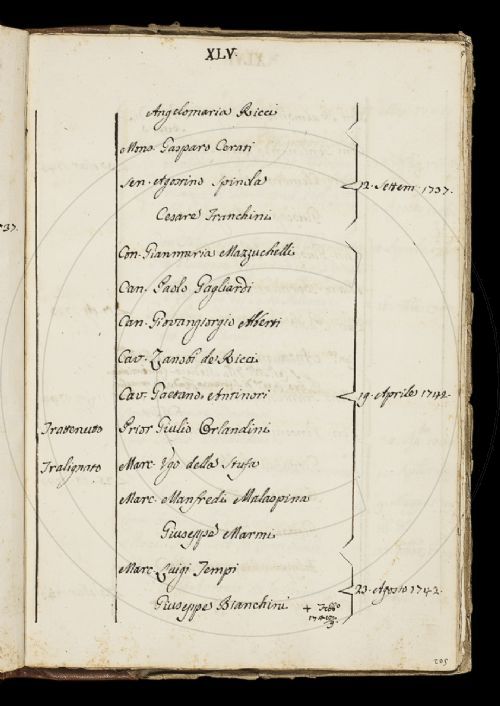 XLV.
Angelomaria Ricci
Mons. Gasparo Cerati
Sen. Agostino Spinola
12. Settem. 1737.
Cesare Franchini
37.
Con. Gianmaria Mazzuchelli
Can. Paolo Gagliardi
Can. Giovangiorgio Alberti
Cav. Zanobi de Ricci
Cav. Gaetano Antinori
19. Aprile 1742.
Trattenuto Prior Giulio Orlandini
Tralignato Marc. Ugo della Stufa
Marc. Manfredi Malaspina
Giuseppe Marmi
Marc. Luigi Tempi
23. Agosto 1742.
Giuseppe Bianchini + Febb.o
205